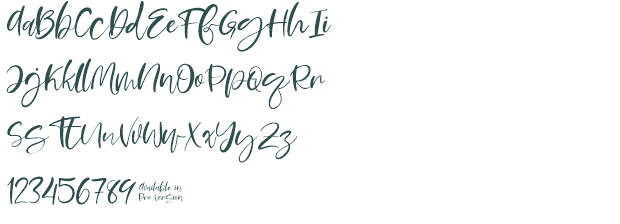 AaBbCcDdEeFfGgHhIi
JjKkLlMmNnOoPpQqRr
SsTtUuVvWwXxYyZz
123456789 Available in
Pro Version